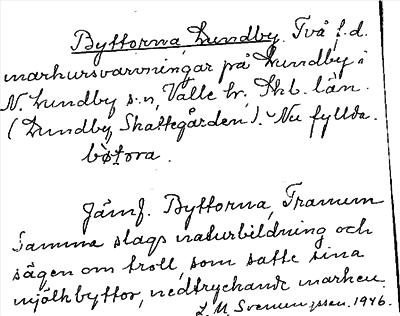 Byttorna, Lundby. Två f.d.
markursvarvningar på Lundby i
N. Lundby s:n, Valle hr, Skb. län.
(Lundby Skattegården). Nu fyllda.
bøtora.
Jämf. Byttorna, Tranum
Samma slags naturbildning och
sägen om troll, som satte sina
mjölkbyttor, nedtryckande marken.
L. M. Svenungsson. 1946.